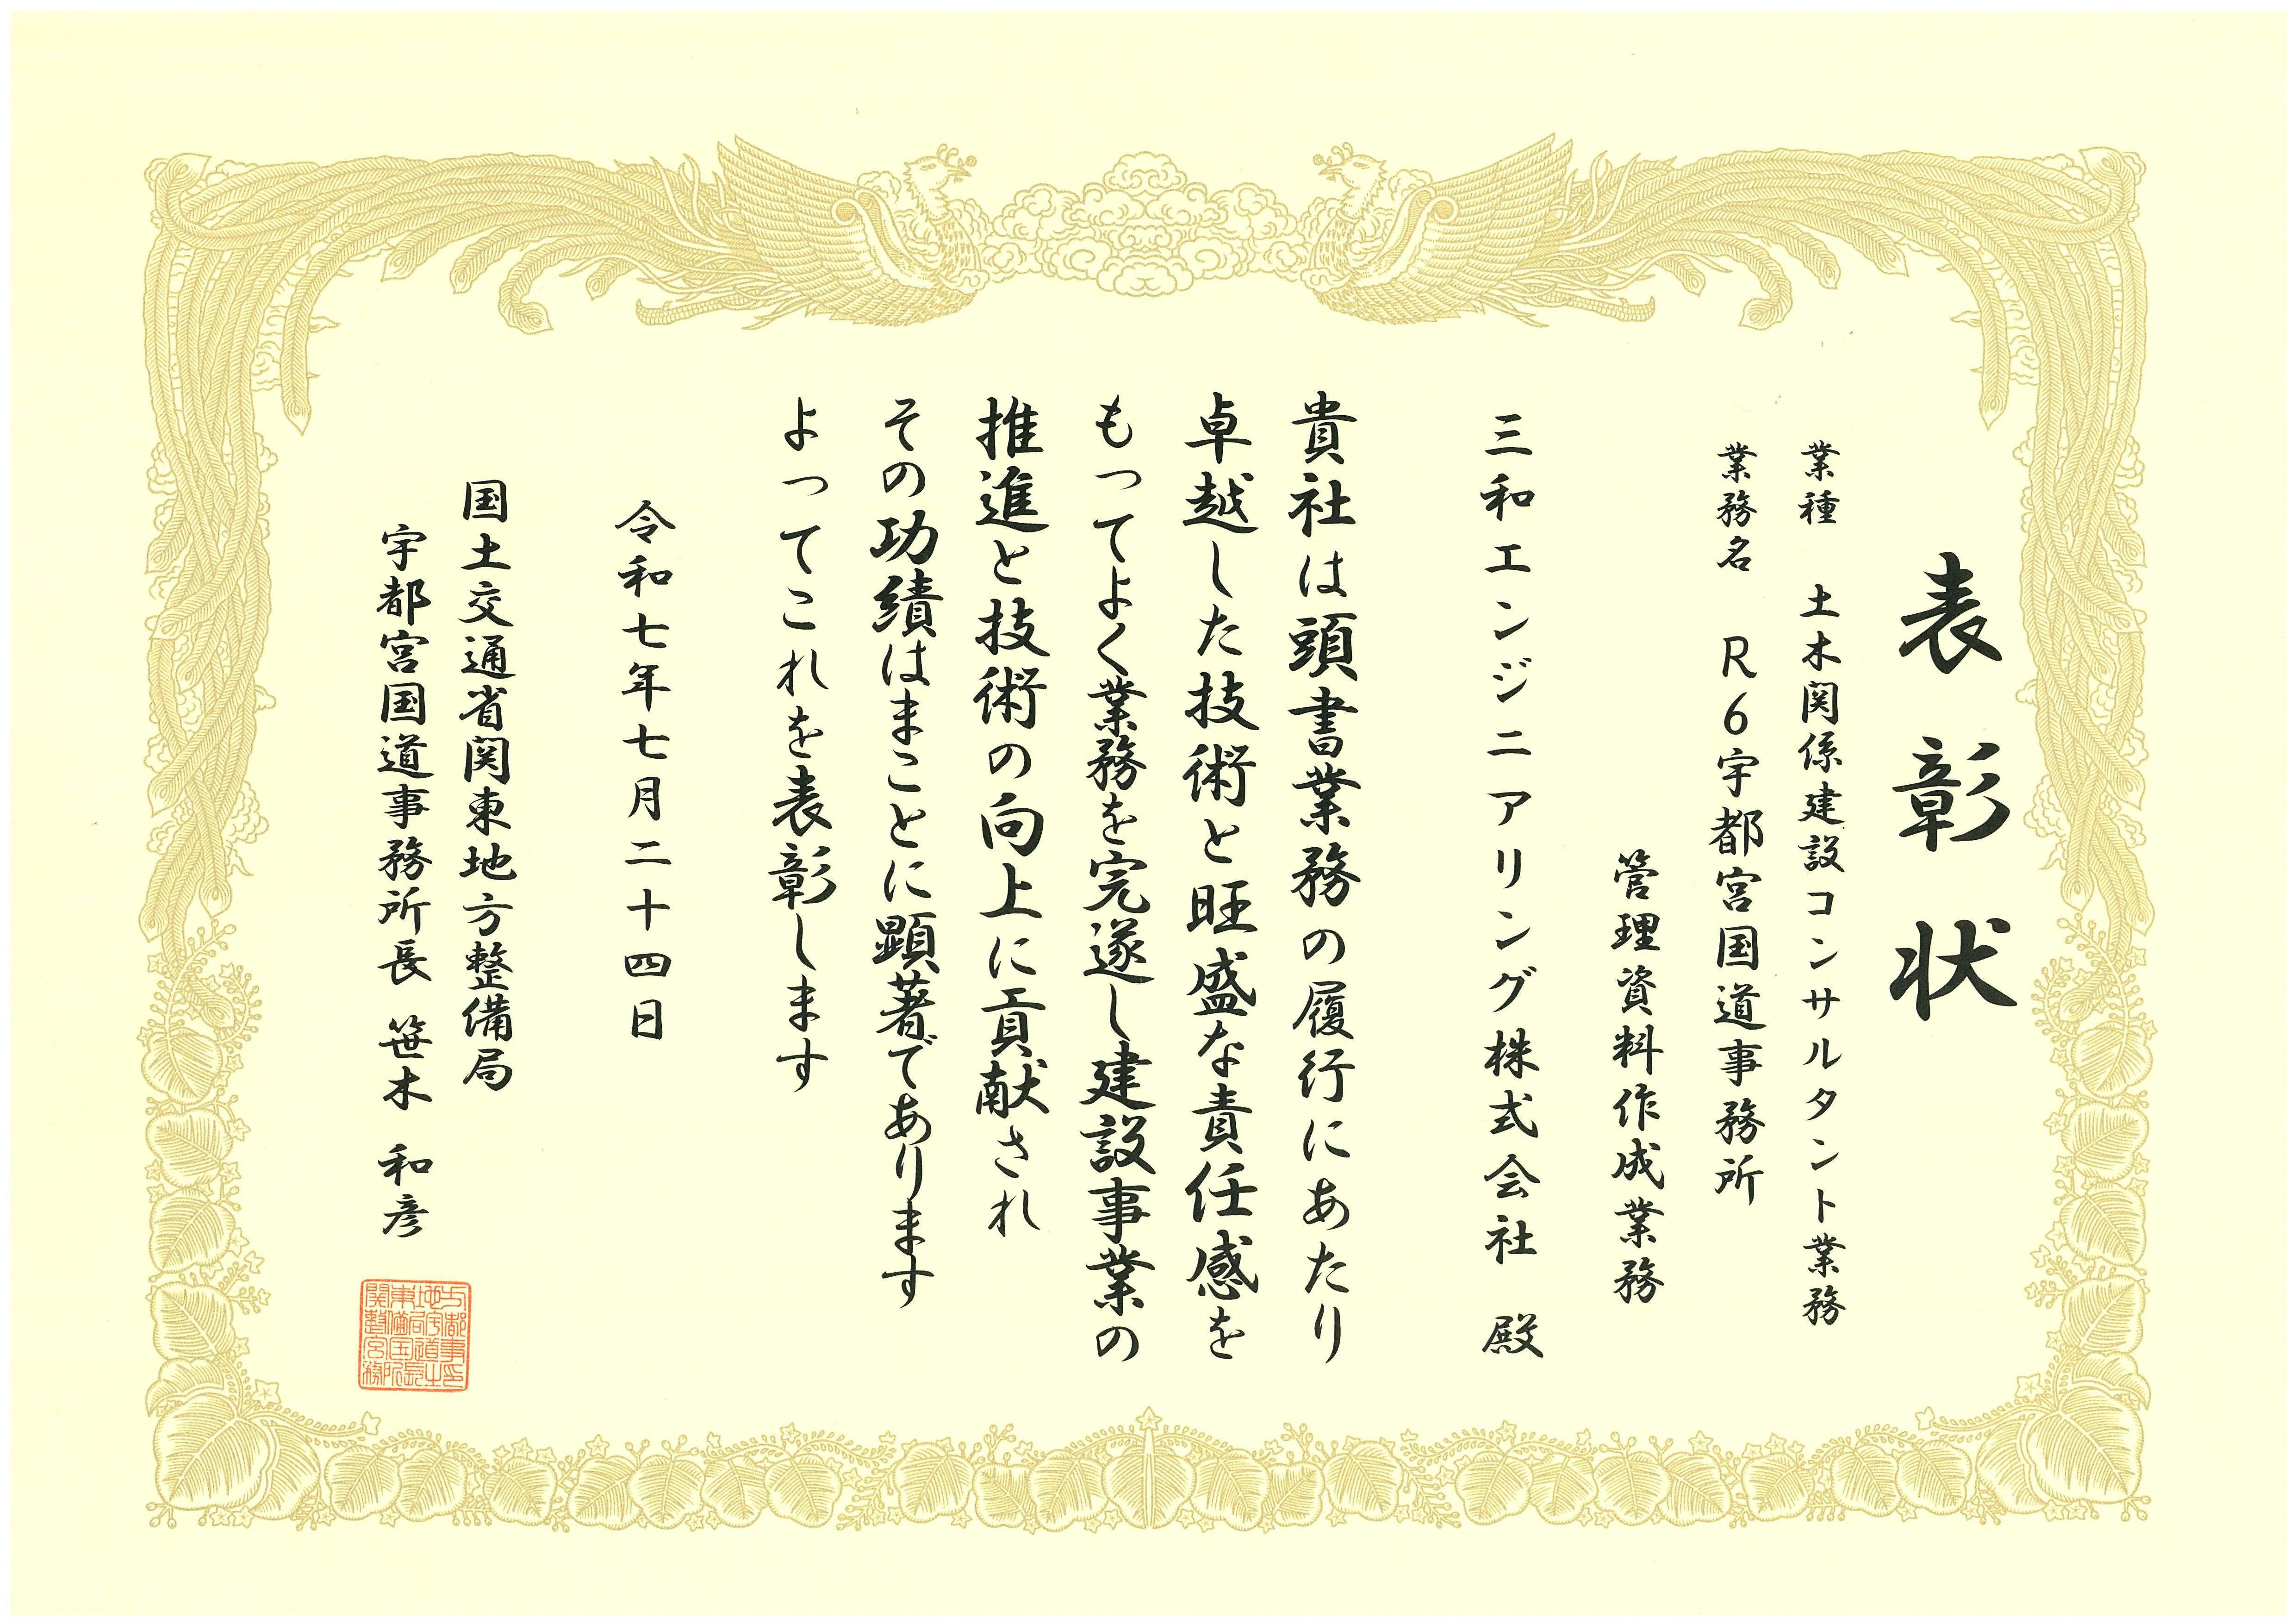 表彰状
業種 土木関係建設コンサルタント業務
業務名 R6宇都宮国道事務所
管理資料作成業務
三和エンジニアリング株式会社 殿
貴社は頭書業務の履行にあたり
卓越した技術と旺盛な責任感を
もってよく業務を完遂し建設事業の
推進と技術の向上に貢献され
その功績はまことに顕著であります
よってこれを表彰します
令和七年七月二十四日
国土交通省関東地方整備局
宇都宮国道事務所長 笹木 和彦